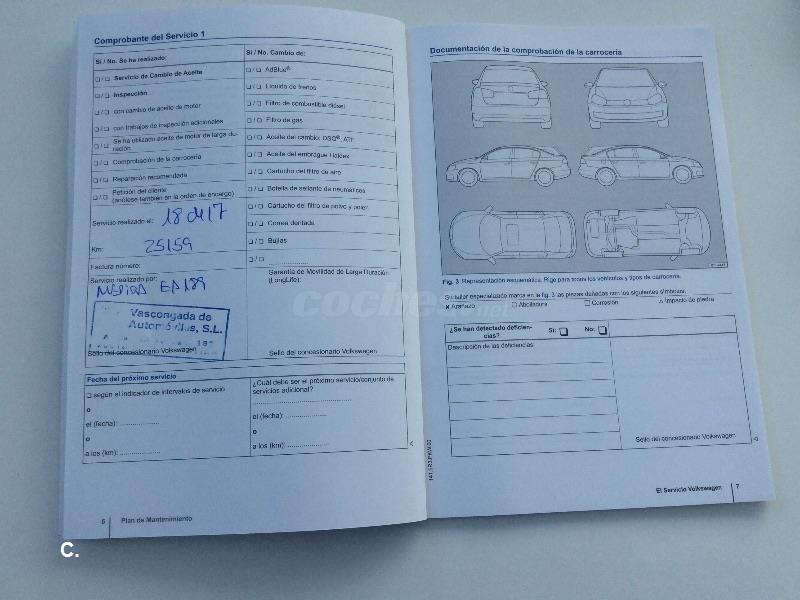 Comprobante del Servicio 1
Sí / No. Se ha realizado:
Servicio de Cambio de Aceite
Inspección
con cambio de aceite de motor
con trabajos de inspección adicionales
Se ha utilizado aceite de motor de larga du-
ración
Comprobación de la carrocería
Reparación recomendada
Petición del cliente
(anótese también en la orden de encargo)
Servicio realizado el:
Km: 25159
Factura número:
Servicio realizado por:
MEDIDA EA189
Vascongada de
Automóviles, S.L.
Sello del concesionario Volkswagen
Sí / No. Cambio de:
AdBlue®
Líquido de frenos
Filtro de combustible diésel
Filtro de gas
Aceite del cambio: DSG®, ATF
Aceite del embrague Haldex
Cartucho del filtro de aire
Botella de sellante de neumáticos
Cartucho del filtro de polvo y polen
Correa dentada
Bujías
Garantía de Movilidad de Larga Duración
(LongLife):
Sello del concesionario Volkswagen
Fecha del próximo servicio
según el indicador de intervalos de servicio
o
el (fecha):
o
a los (km):
¿Cuál debe ser el próximo servicio/conjunto de
servicios adicional?
el (fecha):
o
a los (km):
6 Plan de Mantenimiento
Documentación de la comprobación de la carrocería
Fig. 3 Representación esquemática. Rige para todos los vehículos y tipos de carrocería.
Su taller especializado marca en la fig. 3 las piezas dañadas con los siguientes símbolos:
x Arañazo Abolladura Corrosión Impacto de piedra
¿Se han detectado deficien-
cias? Sí: No:
Descripción de las deficiencias:
Sello del concesionario Volkswagen
El Servicio Volkswagen 7
coches.net
C.